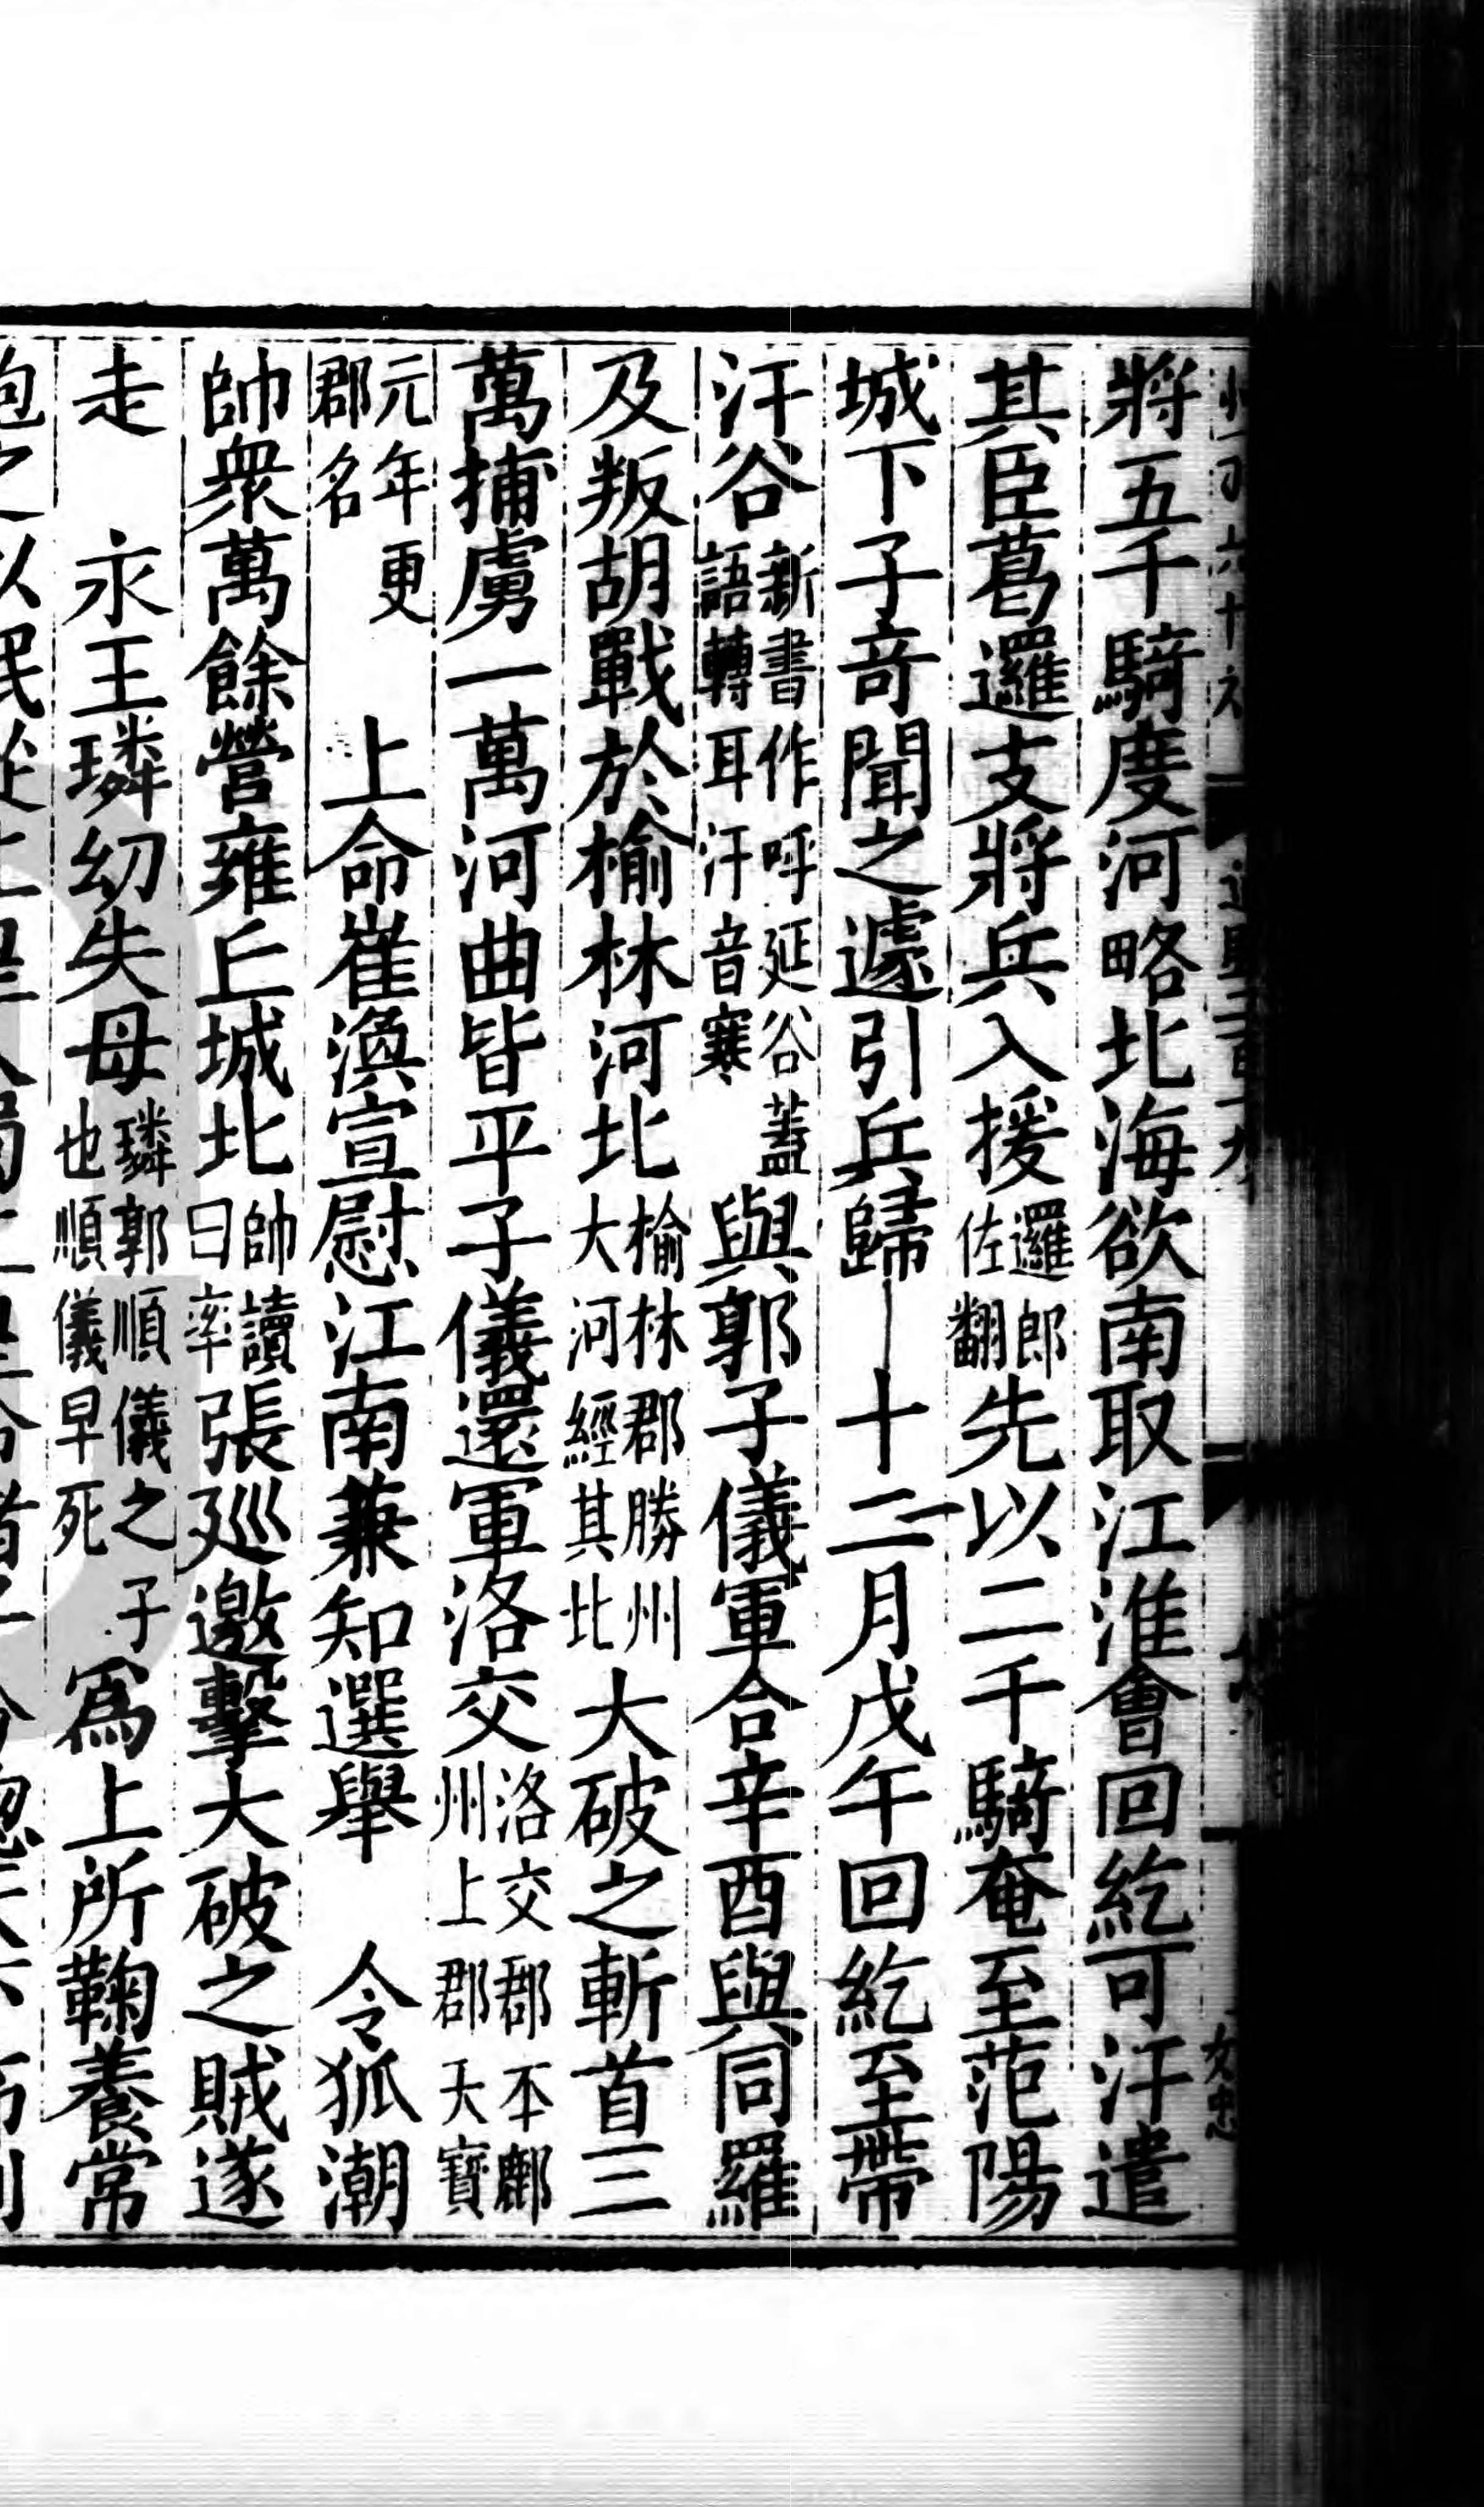 將五千騎度河略北海欲南取江淮會回紇可汗遣
其臣葛邏支將兵入援邏郎佐翻先以二千騎奄至范陽
城下子竒聞之遽引兵歸十二月戊午回紇至帶
汗谷新書作呼延谷蓋語轉耳汗音寒與郭子儀軍合辛酉與同羅
及叛胡戰於榆林河北榆林郡勝州大河經其北大破之斬首三
萬捕虜一萬河曲皆平子儀還軍洛交洛交郡本鄜州上郡天寶
元年更郡名 上命崔渙宣慰江南兼知選舉 令狐潮
帥衆萬餘營雍丘城北帥讀曰率張廵邀擊大破之賊遂
走 永王璘幼失母璘郭順儀之子也順儀早死爲上所鞠養常